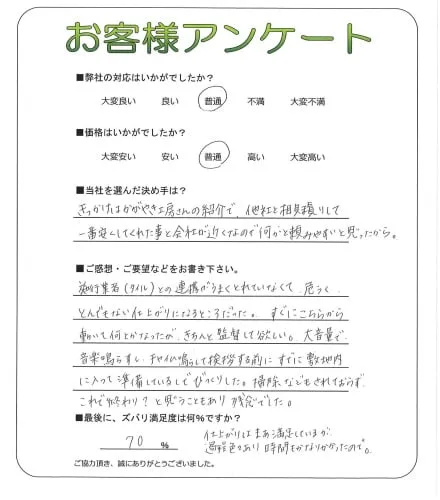 お客様アンケート
■弊社の対応はいかがでしたか？
大変良い 良い 普通 不満 大変不満
■価格はいかがでしたか？
大変安い 安い 普通 高い 大変高い
■当社を選んだ決め手は？
きっかけはかがやき工房さんの紹介で、他社と相見積りして
一番安くしてくれた事と会社が近くなので何かと頼みやすいと思ったから。
■ご感想・ご要望などをお書き下さい。
施行業者(タイル)との連携がうまくとれていなくて、危うく
とんでもない仕上がりになるところだった。すぐにこちらから
動いて何とかなったが、きちんと監督して欲しい。大音量で
音楽鳴らすし、チャイム鳴らして挨拶する前に すでに敷地内
に入って準備しているしでびっくりした。掃除などもされておらず、
これで終わり？と思うこともあり残念でした。
■最後に、ズバリ満足度は何％ですか？
70 ％
仕上がりはまあ満足しているが、
過程色々あり時間もかなりかかったので。
ご協力頂き、誠にありがとうございました。